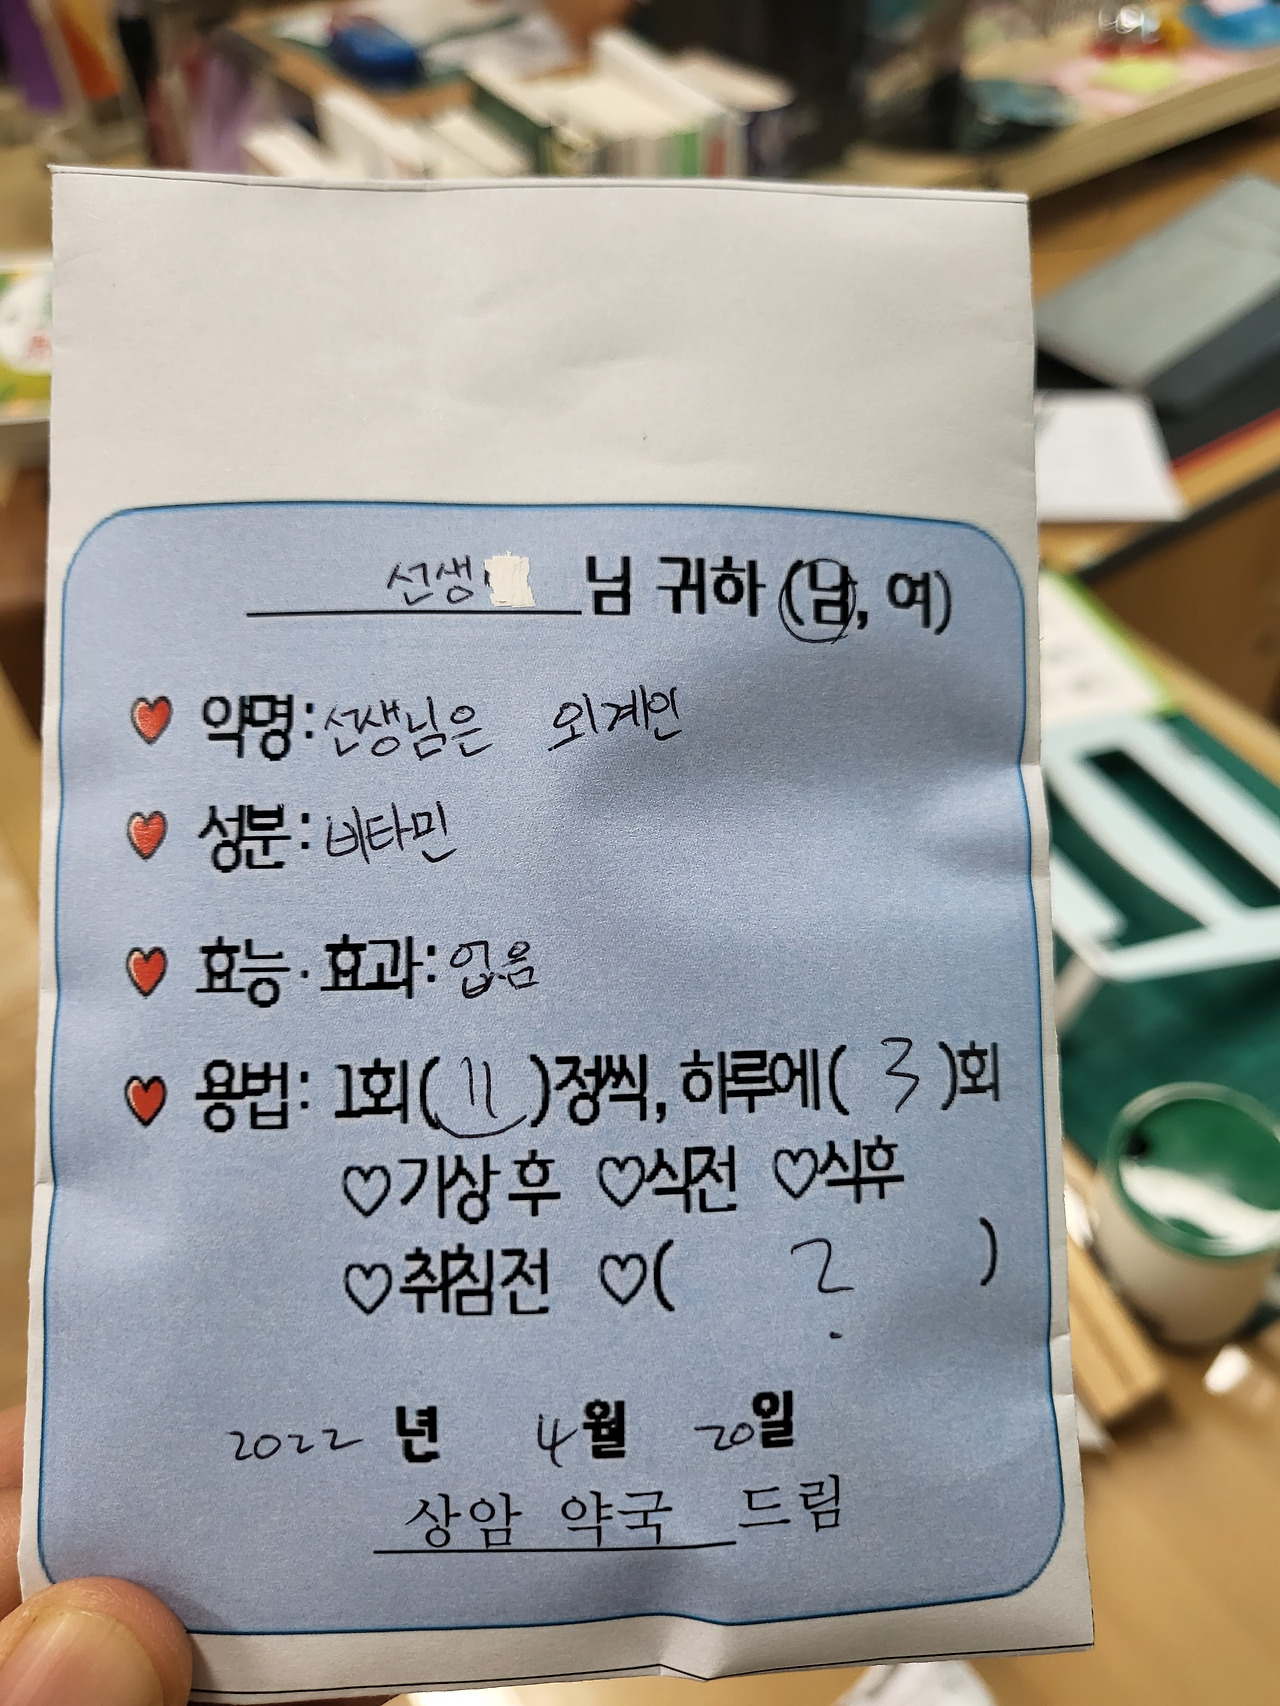 선생 님 귀하 (남, 여)
♥ 약명: 선생님은 외계인
♥ 성분: 비타민
♥ 효능·효과: 없음
♥ 용법: 1회( 11 )정씩, 하루에( 3 )회
♡기상 후 ♡식전 ♡식후
♡취침전 ♡( ? )
2022 년 4월 20일
상암 약국 드림